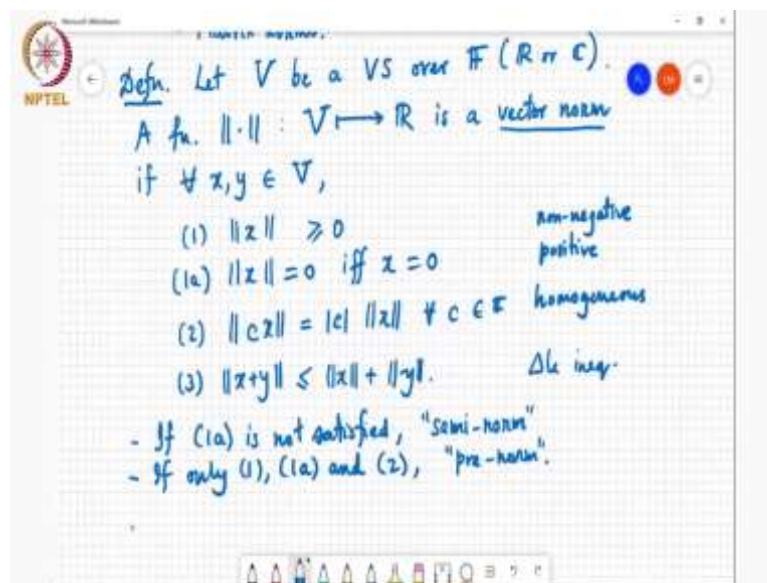 Defn. Let V be a VS over 𝔽 (ℝ or ℂ).
NPTEL
A fn. ||·|| : V ⟼ ℝ is a vector norm
if ∀ x, y ∈ V,
(1) ||x|| ⩾ 0 non-negative
(1a) ||x|| = 0 iff x = 0 positive
(2) ||cx|| = |c| ||x|| ∀ c ∈ 𝔽 homogeneous
(3) ||x+y|| ≤ ||x|| + ||y||. Δle ineq.
- If (1a) is not satisfied, "semi-norm"
- If only (1), (1a) and (2), "pre-norm".